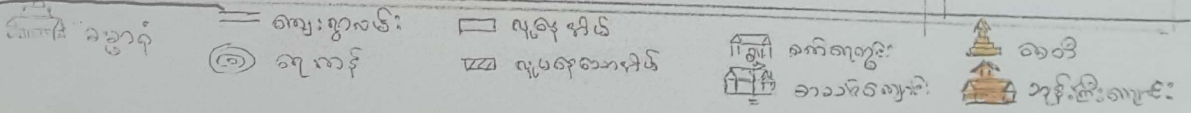 ဓမ္မာရုံ
ကျေးရွာလမ်း
ရေကန်
လူနေအိမ်
လူမနေသောအိမ်
စက်ရေတွင်း
စာသင်ကျောင်း
စေတီ
ဘုန်းကြီးကျောင်း